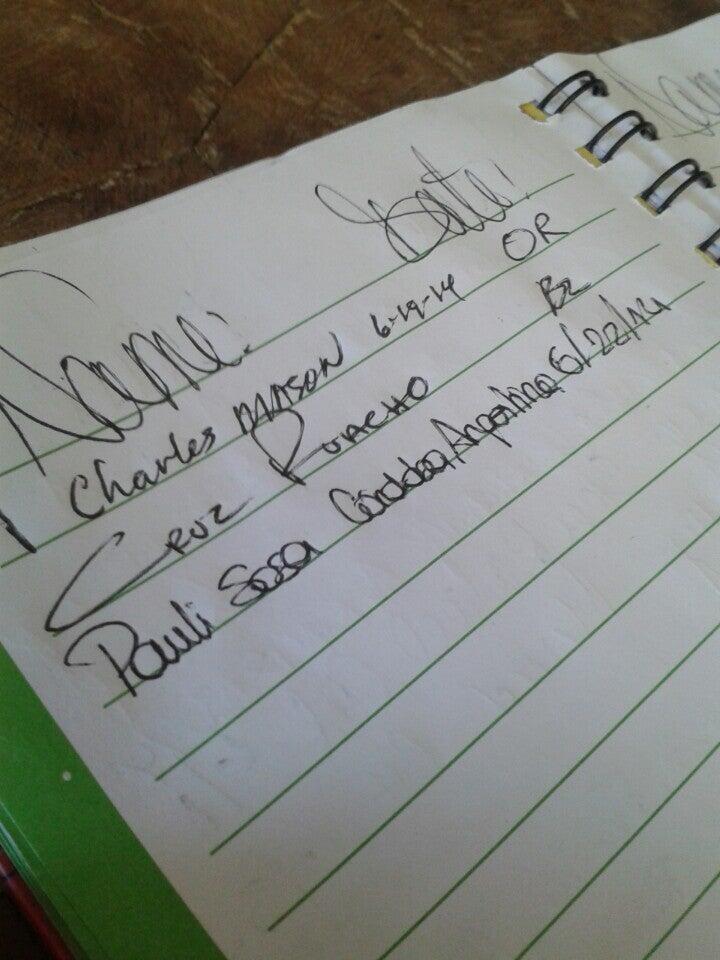 Name: Date:
Charles MASON 6-19-14 OR
CRUZ Bz
Pauli Sosa Córdoba, Argentina 6/22/14